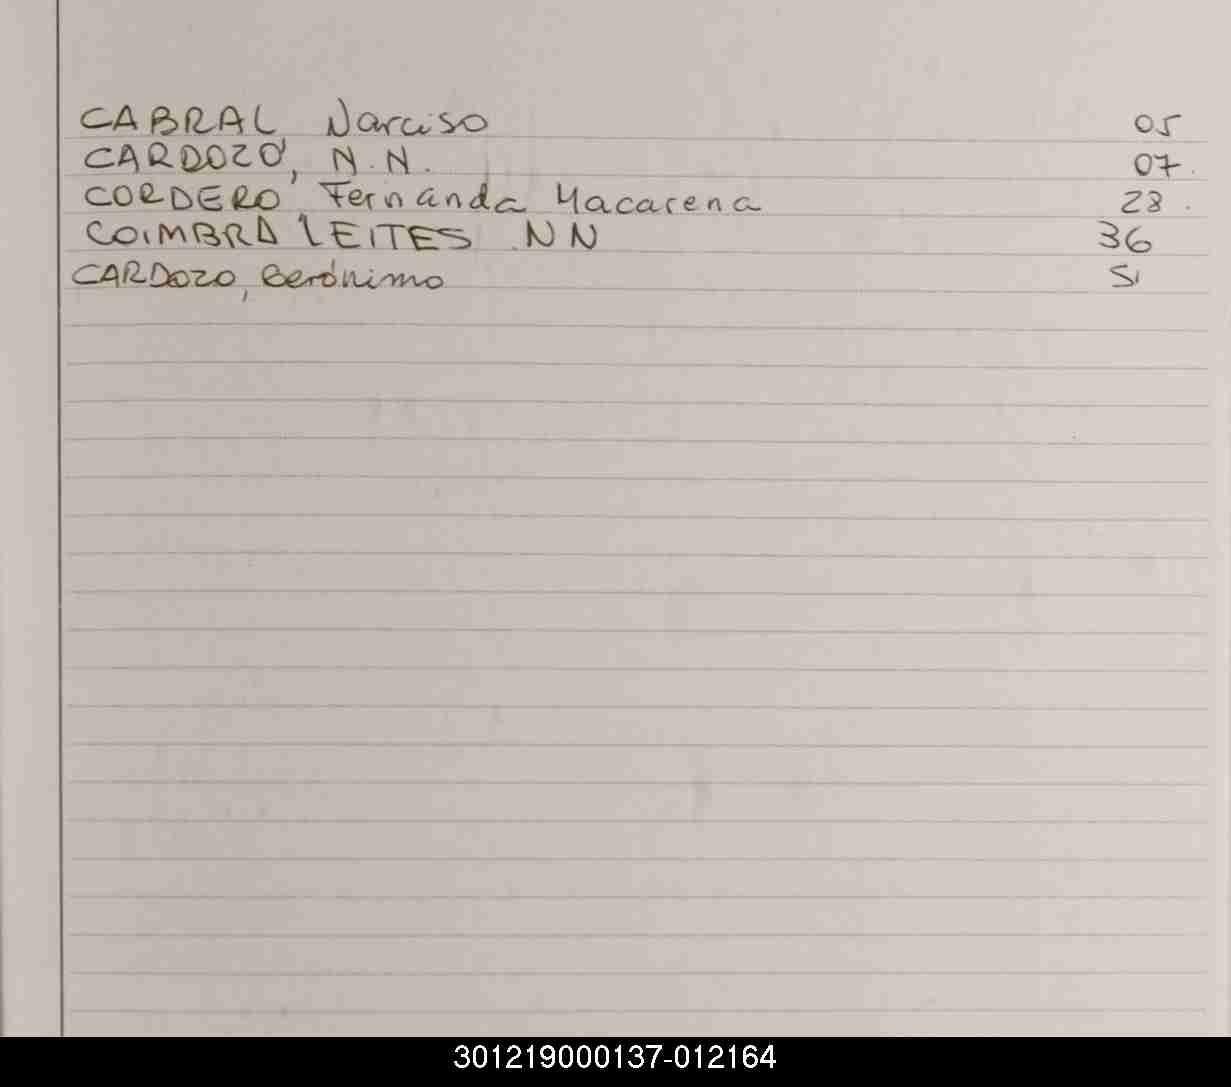 CABRAL, Narciso 05
CARDOZO, N.N. 07.
CORDERO, Fernanda Macarena 28.
COIMBRA LEITES NN 36
CARDOZO, Gerónimo 51
301219000137-012164